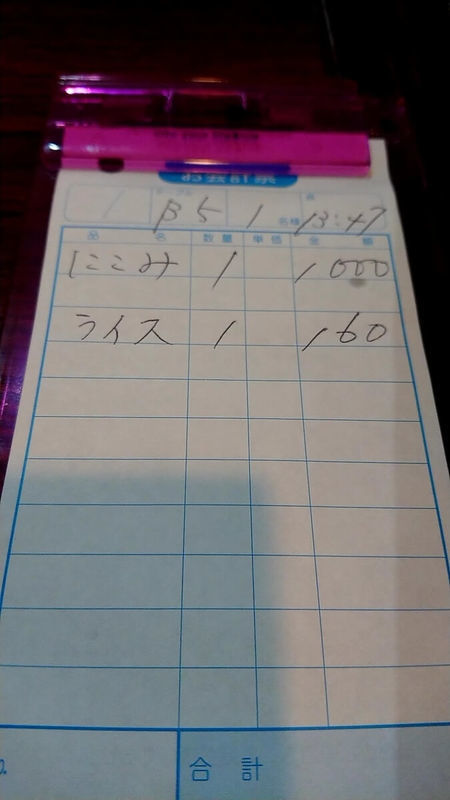 お会計票
B5 1 名様 13:47
品名 数量 単価 金額
にこみ 1 1000
ライス 1 160
合計